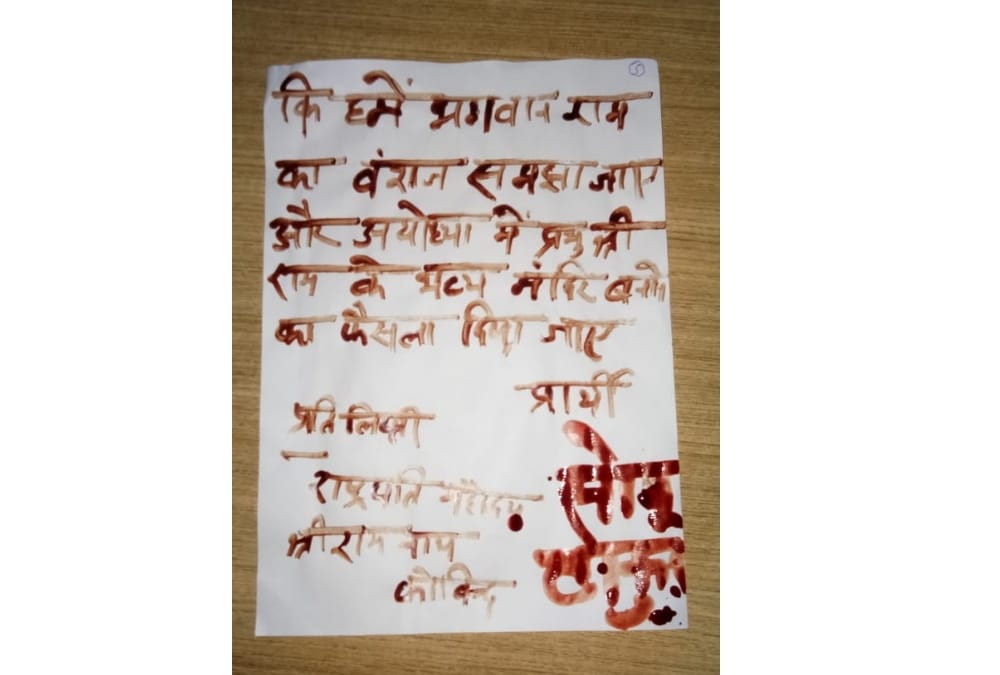 5
कि हमें भगवान राम
का वंशज समझा जाए
और अयोध्या में प्रभु श्री
राम के भव्य मंदिर बनाने
का फैसला दिया जाए
प्रार्थी
प्रति लिपी
राष्ट्रपति महोदय
श्री राम नाथ
कोविन्द
सोनू
ठाकुर